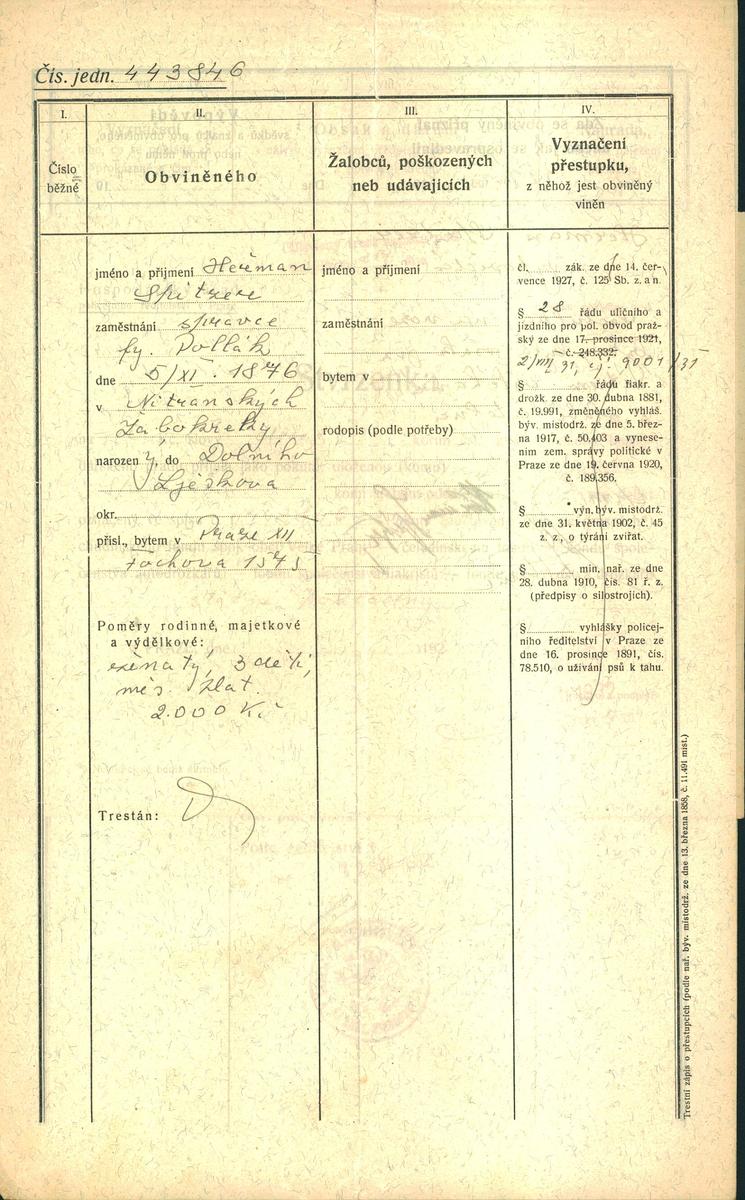 Čís. jedn. 443846
I.
Číslo
běžné
II.
Obviněného
III.
Žalobců, poškozených
neb udávajících
IV.
Vyznačení
přestupku,
z něhož jest obviněný
viněn
jméno a příjmení Heřman
Spitzer
zaměstnání správce
fy. Pollák
dne 5/XI. 1876
v Nitranských
Žabokreky
narozený, do Dolního
Lješkova
okr.
přísl., bytem v Praze XII
Fochova 1575
Poměry rodinné, majetkové
a výdělkové:
ženatý, 3 děti,
měs. plat.
2.000 Kč
Trestán:
jméno a příjmení
zaměstnání
bytem v
rodopis (podle potřeby)
čl. zák. ze dne 14. čer-
vence 1927, č. 125 Sb. z. a n.
§ 28 řádu uličního a
jízdního pro pol. obvod praž-
ský ze dne 17. prosince 1921,
č. 248.332.
2/VII 31, čj. 9001/31
§ řádu fiakr. a
drožk. ze dne 30. dubna 1881,
č. 19.991, změněného vyhláš.
býv. místodrž. ze dne 5. břez-
na 1917, č. 50.403 a vynese-
ním zem. správy politické v
Praze ze dne 19. června 1920,
č. 189.356.
§ výn. býv. místodrž.
ze dne 31. května 1902, č. 45
z. z., o týrání zvířat.
§ min. nař. ze dne
28. dubna 1910, čís. 81 ř. z.
(předpisy o silostrojích).
§ vyhlášky policej-
ního ředitelství v Praze ze
dne 16. prosince 1891, čís.
78.510, o užívání psů k tahu.
Trestní zápis o přestupcích (podle nař. býv. místodrž. ze dne 13. března 1858, č. 11.491 míst.)